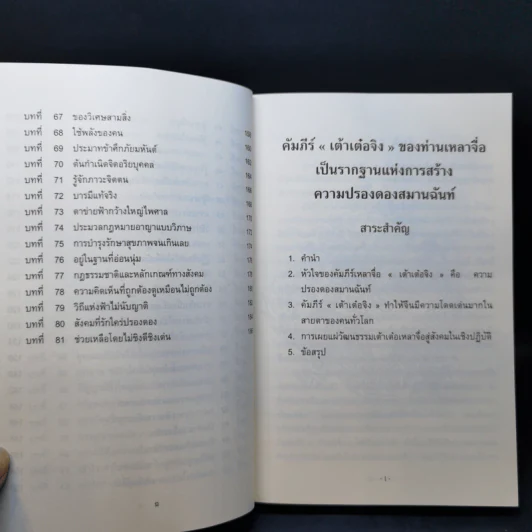 บทที่ 67 ของวิเศษสามสิ่ง
บทที่ 68 ใช้พลังของคน
บทที่ 69 ประมาทข้าศึกภัยมหันต์
บทที่ 70 ต้นกำเนิดจิตอริยบุคคล
บทที่ 71 รู้จักภาวะจิตตน
บทที่ 72 บารมีแท้จริง
บทที่ 73 ตาข่ายฟ้ากว้างใหญ่ไพศาล
บทที่ 74 ประมวลกฎหมายอาญาแบบวิภาษ
บทที่ 75 การบำรุงรักษาสุขภาพจนเกินเลย
บทที่ 76 อยู่ในฐานที่อ่อนนุ่ม
บทที่ 77 กฎธรรมชาติและหลักเกณฑ์ทางสังคม
บทที่ 78 ความคิดเห็นที่ถูกต้องดูเหมือนไม่ถูกต้อง
บทที่ 79 วิถีแห่งฟ้าไม่นับญาติ
บทที่ 80 สังคมที่รักใคร่ปรองดอง
บทที่ 81 ช่วยเหลือโดยไม่ชิงดีชิงเด่น
คัมภีร์ « เต้าเต๋อจิง » ของท่านเหลาจื่อ
เป็นรากฐานแห่งการสร้าง
ความปรองดองสมานฉันท์
สาระสำคัญ
1. คำนำ
2. หัวใจของคัมภีร์เหลาจื่อ « เต้าเต๋อจิง » คือ ความ
ปรองดองสมานฉันท์
3. คัมภีร์ « เต้าเต๋อจิง » ทำให้จีนมีความโดดเด่นมากใน
สายตาของคนทั่วโลก
4. การเผยแผ่วัฒนธรรมเต้าเต๋อเหลาจื่อสู่สังคมในเชิงปฏิบัติ
5. ข้อสรุป
- 1 -